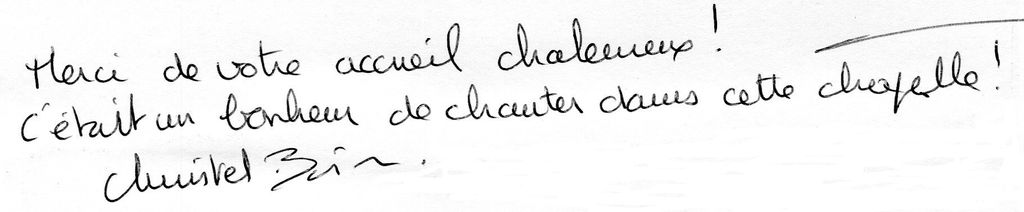 Merci de votre accueil chaleureux !
C'était un bonheur de chanter dans cette chapelle !
Christel